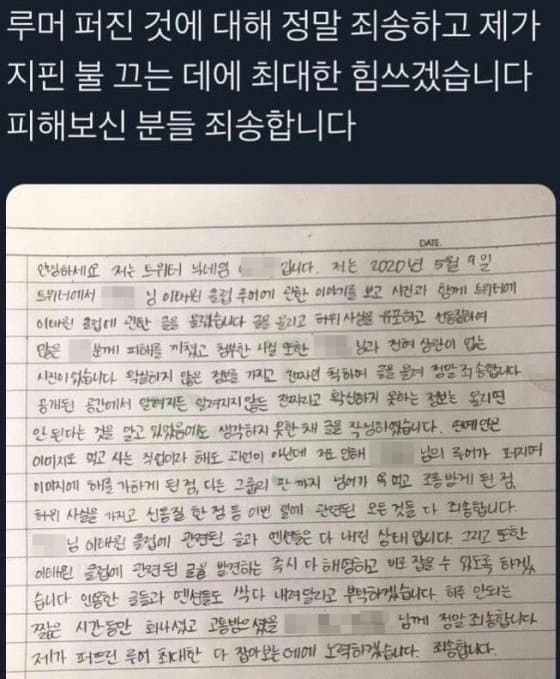 루머 퍼진 것에 대해 정말 죄송하고 제가
지핀 불 끄는 데에 최대한 힘쓰겠습니다
피해보신 분들 죄송합니다
DATE.
안녕하세요 저는 트위터 닉네임 입니다. 저는 2020년 5월 9일
트위터에서 님 이태원 클럽 루머에 관한 이야기를 보고 사진과 함께 트위터에
이태원 클럽에 관한 글을 올렸습니다 글을 올리고 허위 사실을 유포하고 선동질하여
많은 분께 피해를 끼쳤고 첨부한 사실 또한 님과 전혀 상관이 없는
사진이었습니다 확실하지 않은 정보를 가지고 진짜인 척하여 글을 올려 정말 죄송합니다
공개된 공간에서 알려지든 알려지지않든 진짜라고 확신하지 못하는 정보는 올리면
안 된다는 것을 알고 있었음에도 생각하지 못한 채 글을 작성하였습니다. 연예인은
이미지로 먹고 사는 직업이라 해도 과언이 아닌데 저로 인해 님의 루머가 퍼지며
이미지에 해를 가하게 된 점, 다른 그룹의 팬까지 넘어가 욕 먹고 조롱받게 된 점,
허위 사실을 가지고 선동질 한 점 등 이번 일에 관련된 모든 것들 다 죄송합니다.
님 이태원 클럽에 관련된 글과 멘션들은 다 내린 상태입니다. 그리고 또한
이태원 클럽에 관련된 글을 발견하는 즉시 다 해명하고 바로 잡을 수 있도록 하겠
습니다 인용한 글들과 멘션들도 싹 다 내려달라고 부탁하겠습니다. 하루 안되는
짧은 시간동안 화나셨고 고통받으셨을 님께 정말 죄송합니다
제가 퍼뜨린 루머 최대한 다 잡아오는데에 노력하겠습니다. 죄송합니다.